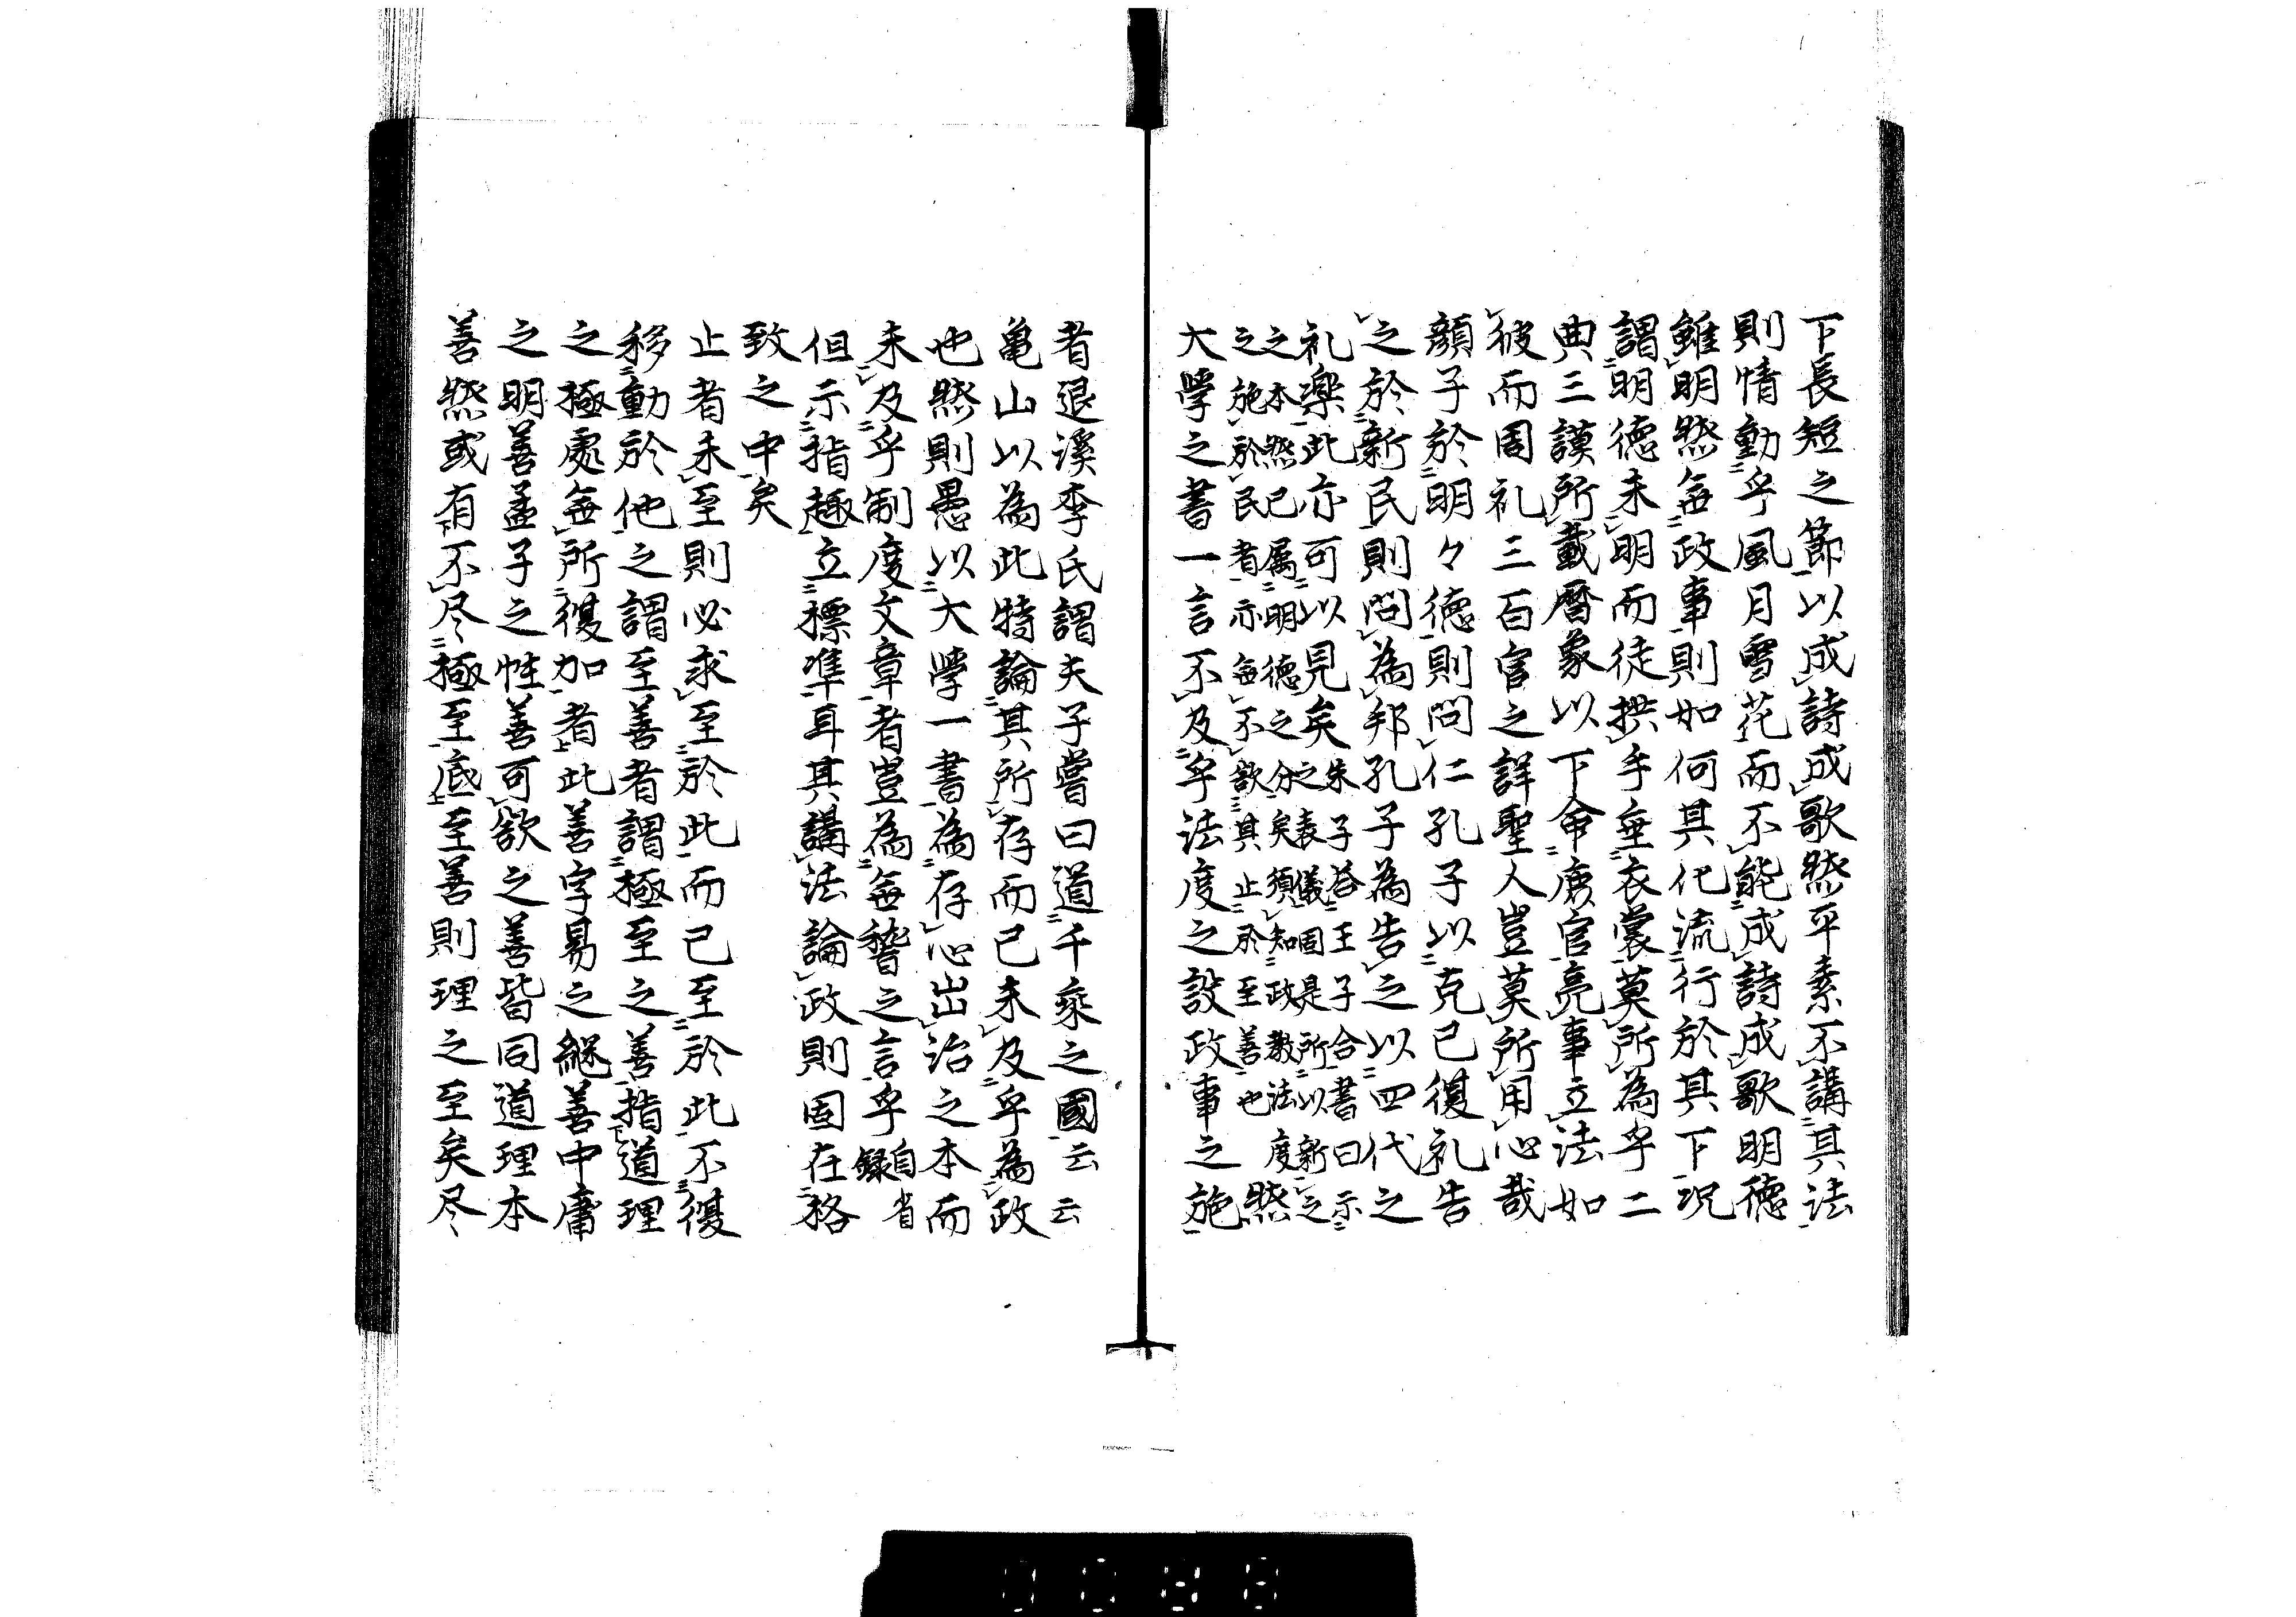 下長短之節以成詩成歌然平素不講其法
則情動乎風月雪花而不能成詩成歌明徳
雖明然無政事則如何其化流行於其下況
謂明徳未明而徒拱手垂衣裳莫所為乎二
典三謨所載暦象以下命庶官亮事立法如
彼而周礼三百官之詳聖人豈莫所用心哉
顔子於明々徳則問仁孔子以克己復礼告
之於新民則問為邦孔子為告之以四代之
礼楽此亦可以見矣朱子答王子合書曰示
之表儀固是所以新之
之本然已属明徳之分矣須知政教法度
之施於民者亦無不欲其止於至善也然
大学之書一言不及乎法度之設政事之施
者退溪李氏謂夫子嘗曰道千乗之國云云
亀山以為此特論其所存而已未及乎為政
也然則愚以大学一書為存心出治之本而
未及乎制度文章者豈為無稽之言乎自省録
但示指趣立標準耳其講法論政則固在格
致之中矣
止者未至則必求至於此而已至於此不復
移動於他之謂至善者謂極至之善指道理
之極處無所復加者此善字易之継善中庸
之明善孟子之性善可欲之善皆同道理本
善然或有不尽極至底至善則理之至矣尽